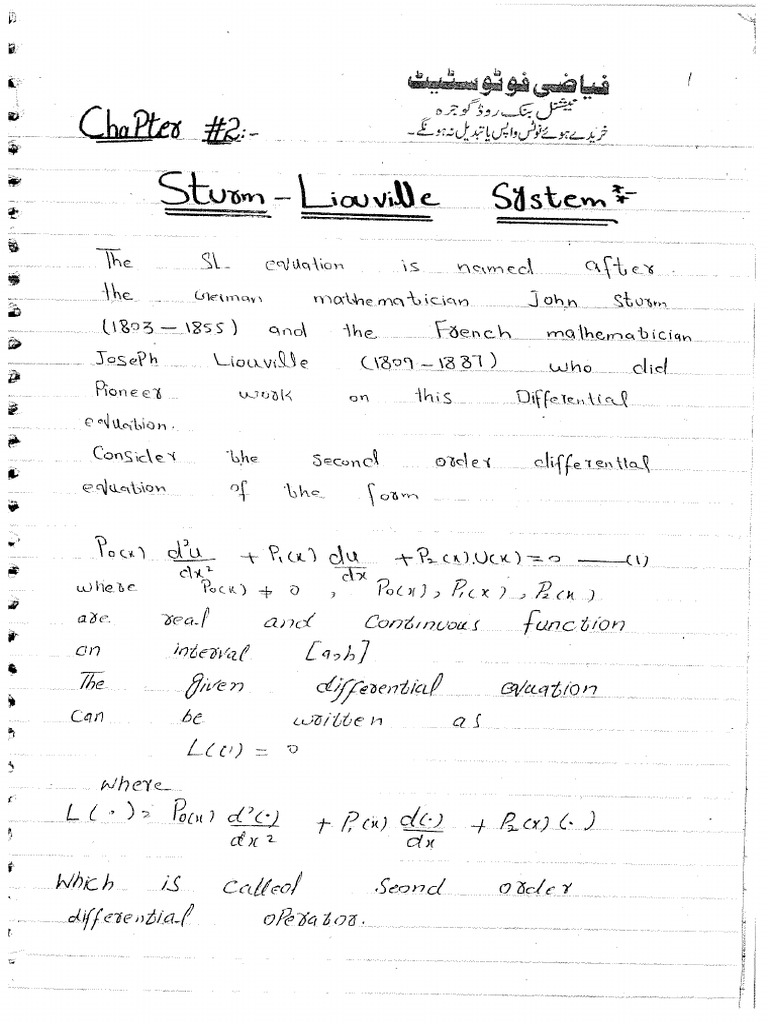 فیاضی فوٹوسٹیٹ
1
نیشنل بنک روڈ گوجرہ
خریدے ہوئے نوٹس واپس یا تبدیل نہ ہونگے۔
ChaPter #2:-
Sturm - Liouville System:-
The SL equation is named after
the German mathematician John Sturm
(1803 - 1855) and the French mathematician
Joseph Liouville (1809 - 1887) who did
Pioneer work on this Differential
equation.
Consider the second order differential
equation of the form
P₀(x) d²u/dx² + P₁(x) du/dx + P₂(x).U(x) = 0 —— (1)
where P₀(x) ≠ 0 , P₀(x), P₁(x), P₂(x)
are real and continuous function
on interval [a,b]
The given differential equation
can be written as
L(u) = 0
where
L(·) = P₀(x) d²(·)/dx² + P₁(x) d(·)/dx + P₂(x)(·)
Which is called seond order
differential operator.